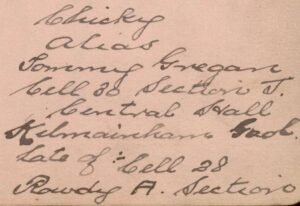 Chicky
Alias
Tommy Gregan
Cell 30 Section J.
Central Hall
Kilmainham Gaol.
Late of :- Cell 28
Rowdy A. Section